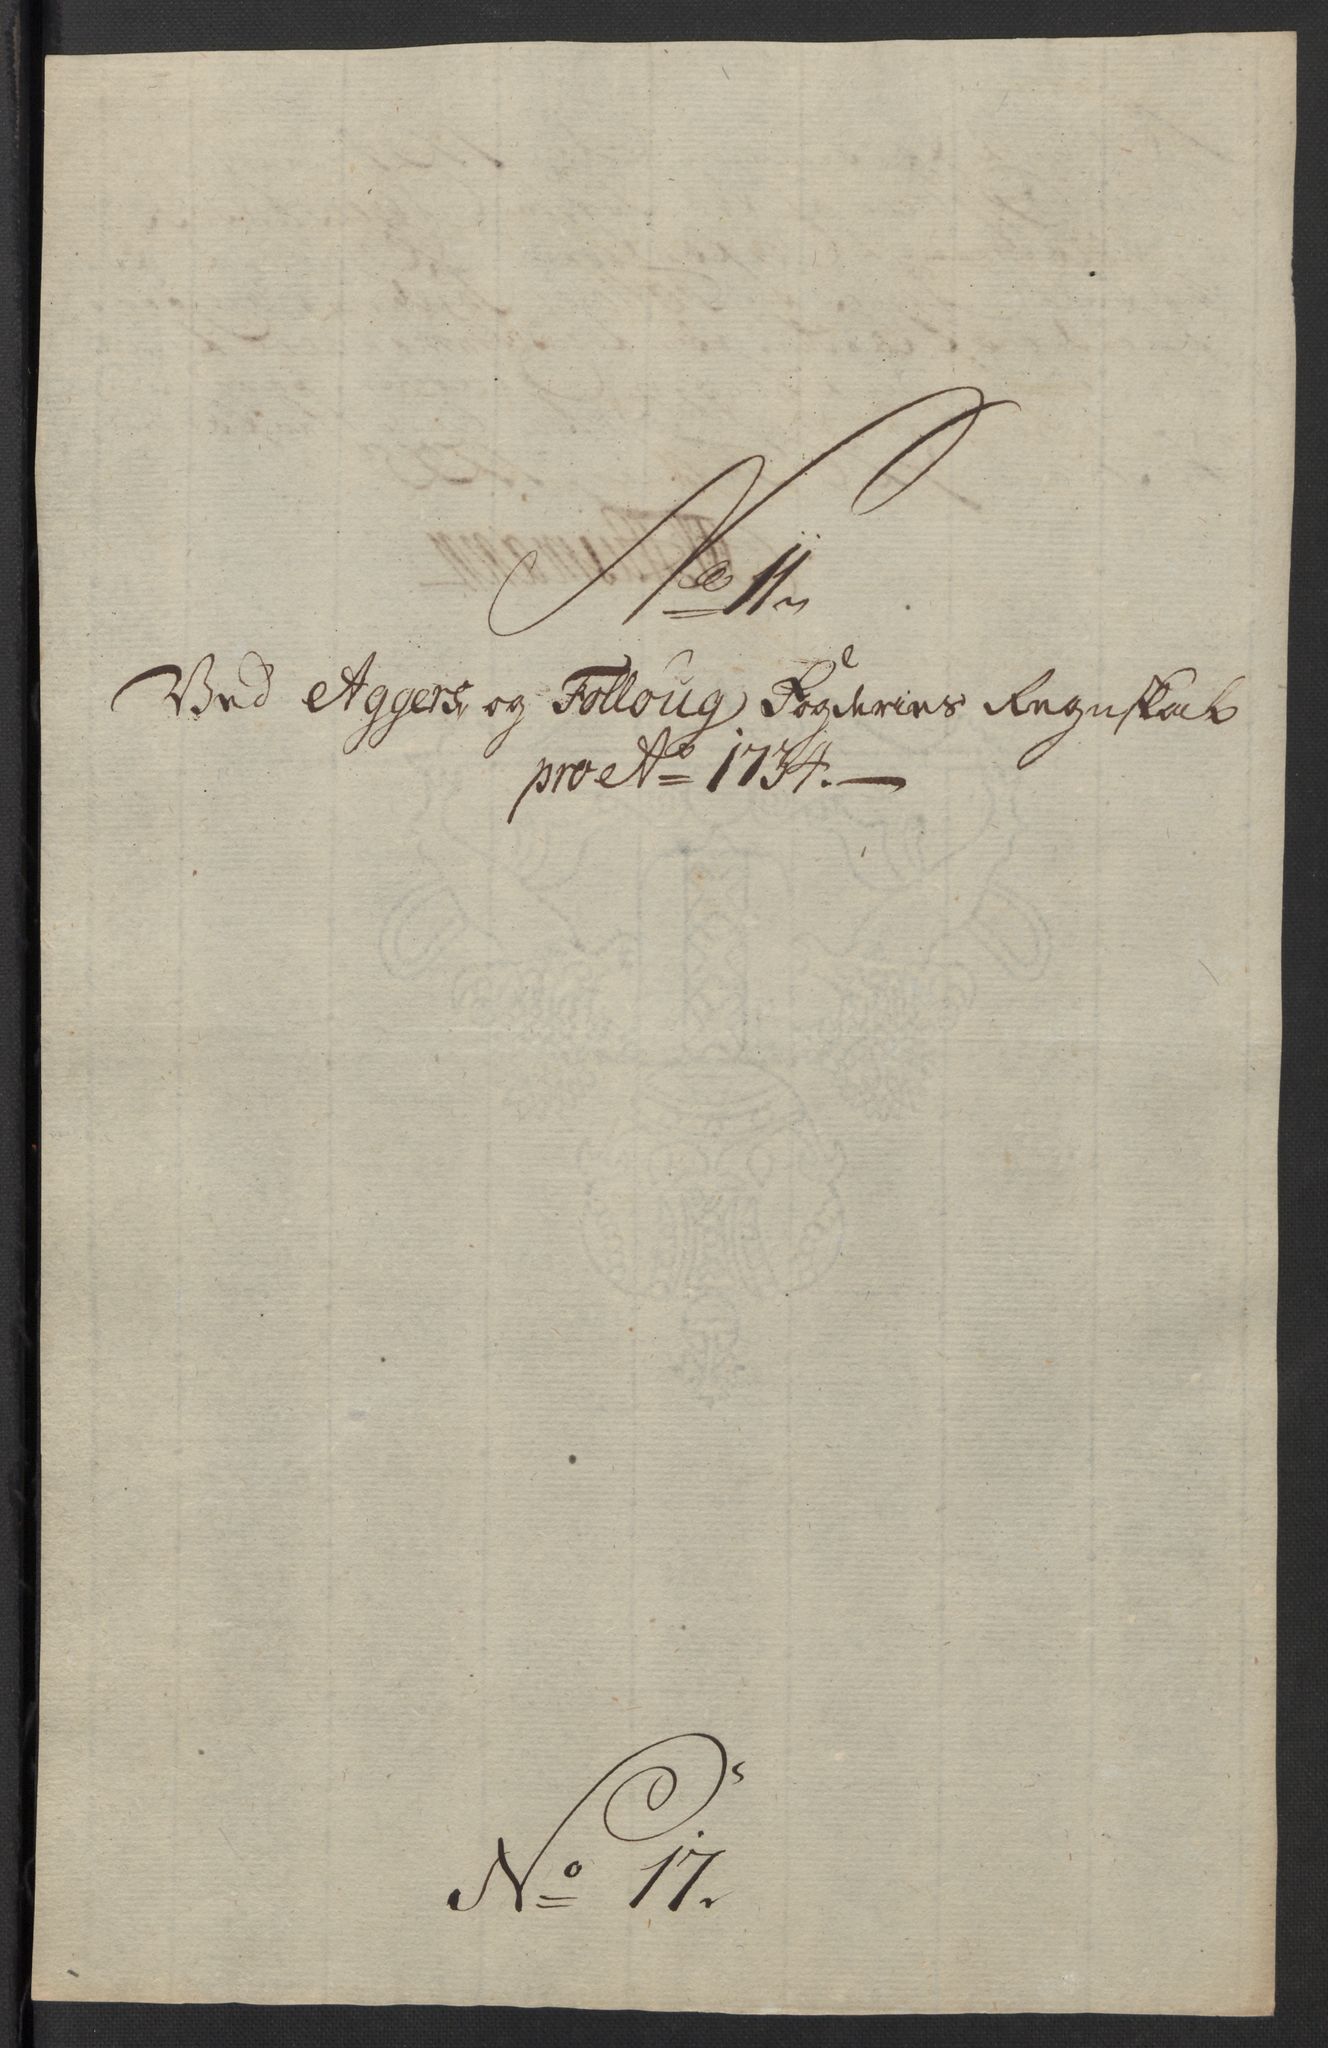 No 11
Ved Aggers og Folloug Fogderies Regnskab
pro Ao 1734.
No 17.